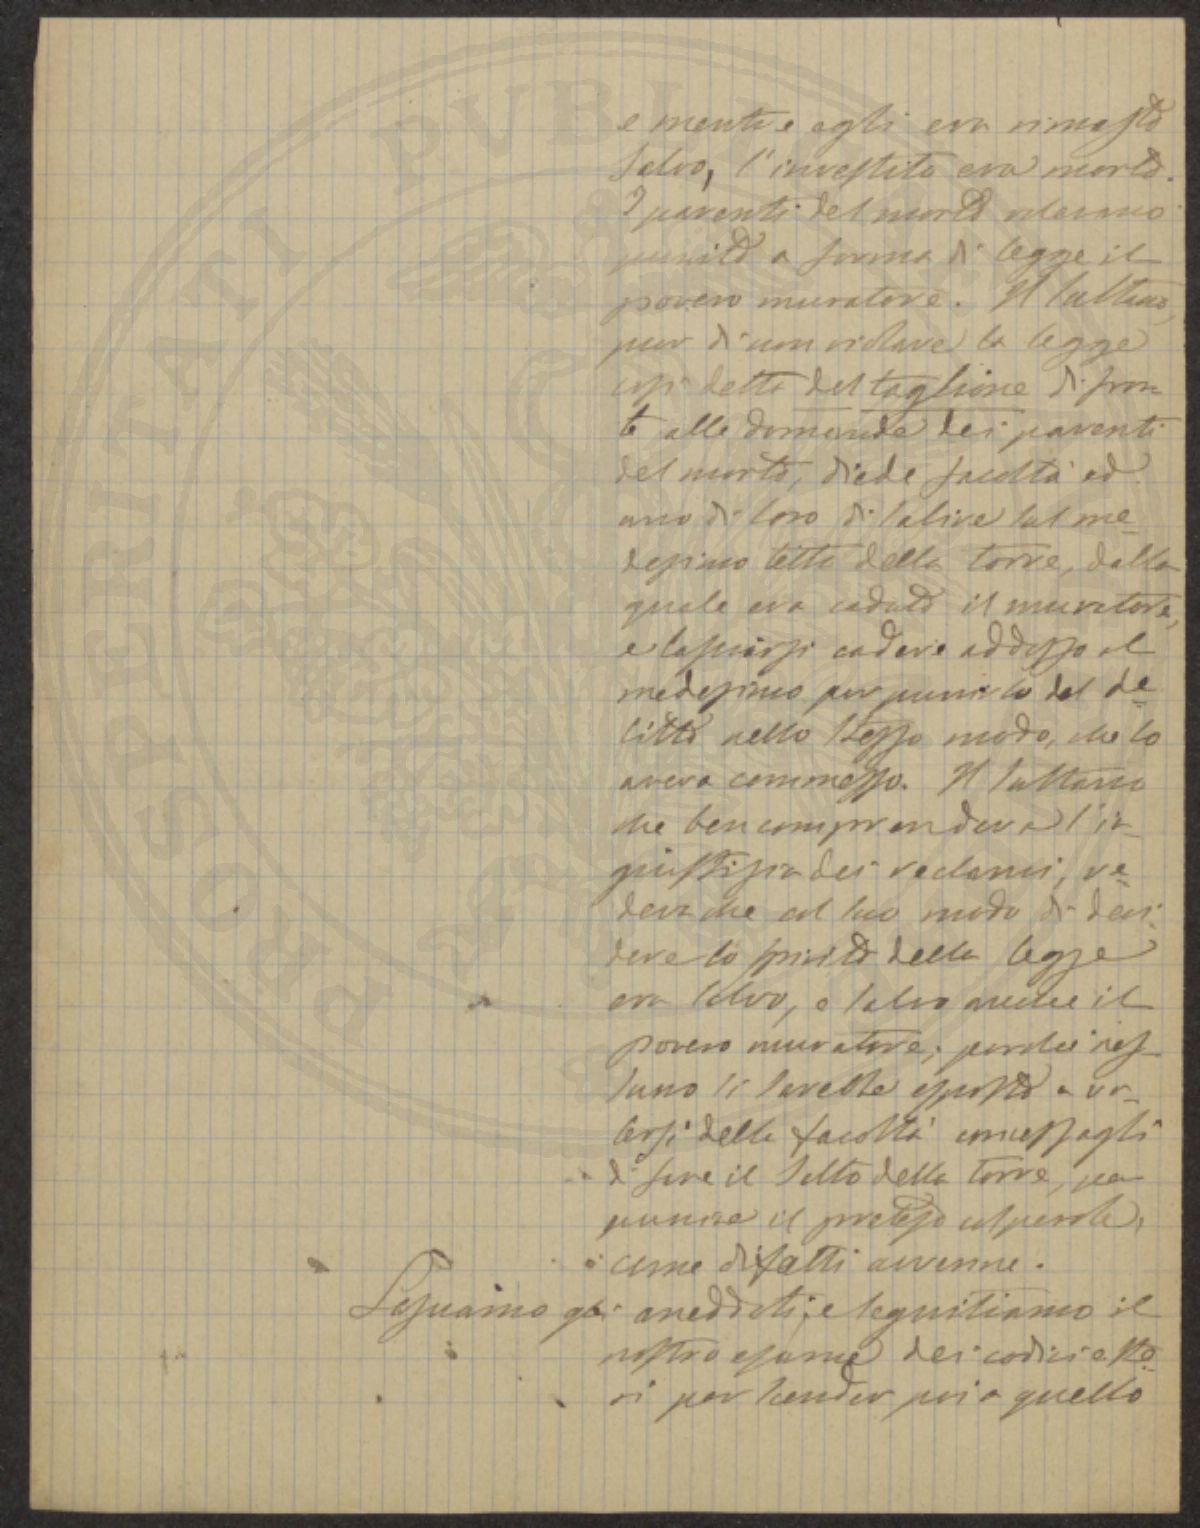 e mentre egli era rimasto
salvo, l'investito era morto.
I parenti del morto volevano
punito a forma di legge il
povero muratore. Il Sultano,
pur di non violare la legge
così detta del taglione di fron
te alle domande dei parenti
del morto, diede facoltà ad
uno di loro di salire sul me
desimo tetto della torre, dalla
quale era caduto il muratore,
e lasciarsi cadere addosso al
medesimo per punirlo del de
litto nello stesso modo, che lo
aveva commesso. Il Sultano
che ben comprendeva l'in
giustizia dei reclami, ve
deva che col suo modo di deci
dere lo spirito della legge
era salvo, e salvo anche il
povero muratore; perchè nes
suno si sarebbe esposto a va
lersi della facoltà concessagli
di fare il salto della torre, per
punire il preteso colpevole,
come difatti avvenne.
Lasciamo gli aneddoti, e seguitiamo il
nostro esame dei codici este
ri per scender poi a quello
PROSPERITATI PUBLICAE